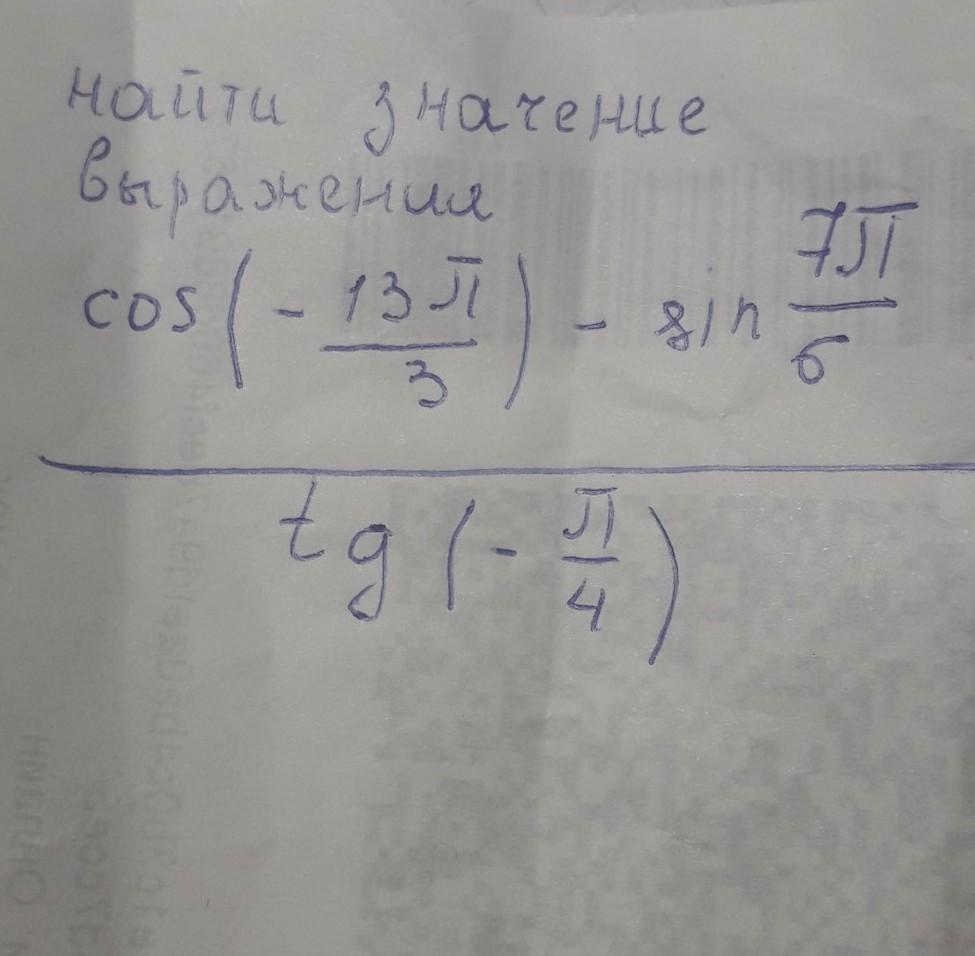 найти значение
выражения
cos(-13π/3) - sin 7π/6
tg(-π/4)